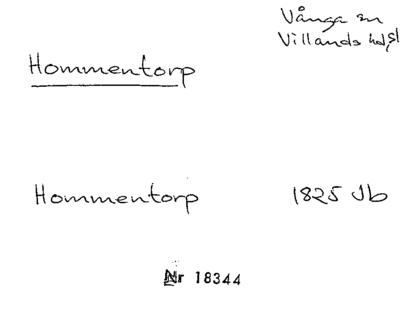 Vånga sn
Villands hd, Sk
Hommentorp
Hommentorp 1825 Jb
Nr 18344